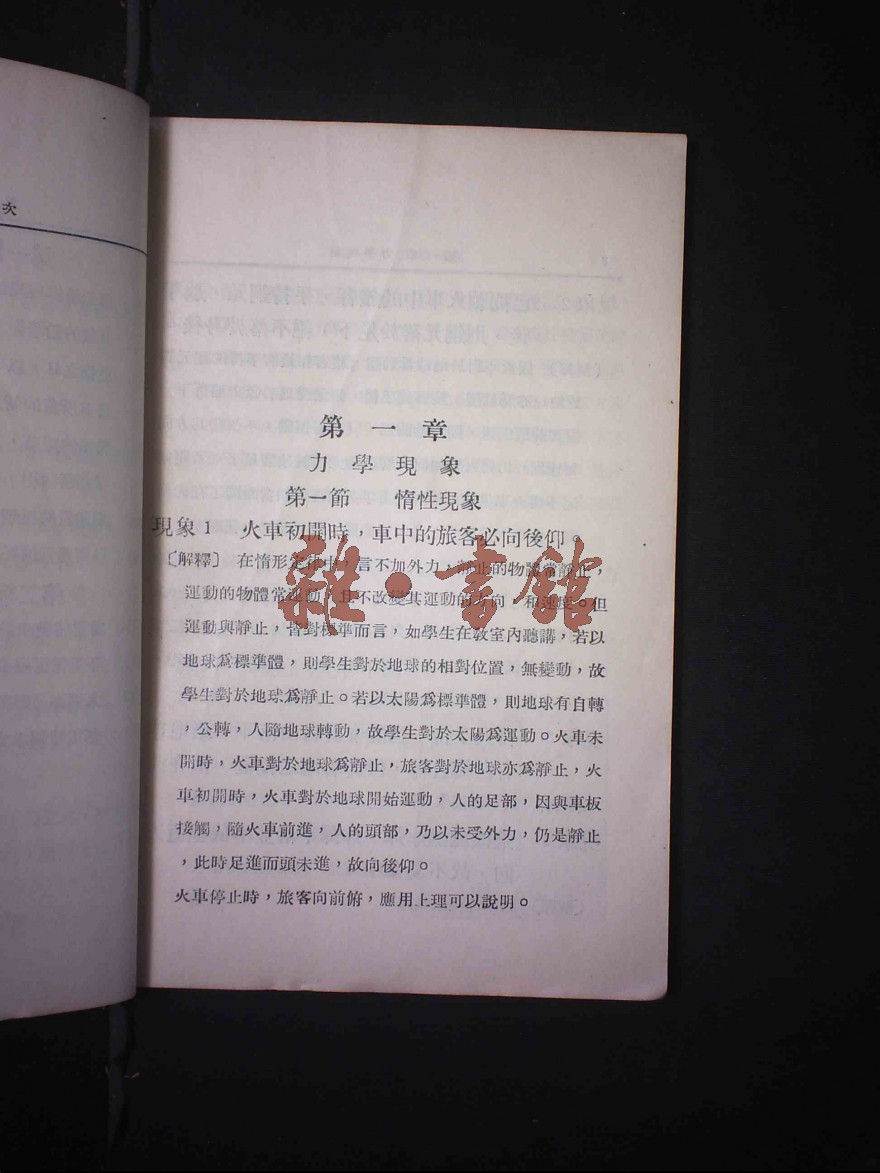 次
第一章
力學現象
第一節 惰性現象
現象1 火車初開時，車中的旅客必向後仰。
〔解釋〕 在惰形定律中，言不加外力，靜止的物體常靜止，
運動的物體常運動，且不改變其運動的方向，和速度。但
運動與靜止，皆對標準而言，如學生在教室內聽講，若以
地球爲標準體，則學生對於地球的相對位置，無變動，故
學生對於地球爲靜止。若以太陽爲標準體，則地球有自轉
，公轉，人隨地球轉動，故學生對於太陽爲運動。火車未
開時，火車對於地球爲靜止，旅客對於地球亦爲靜止，火
車初開時，火車對於地球開始運動，人的足部，因與車板
接觸，隨火車前進，人的頭部，乃以未受外力，仍是靜止
，此時足進而頭未進，故向後仰。
火車停止時，旅客向前俯，應用上理可以說明。
雜·書館